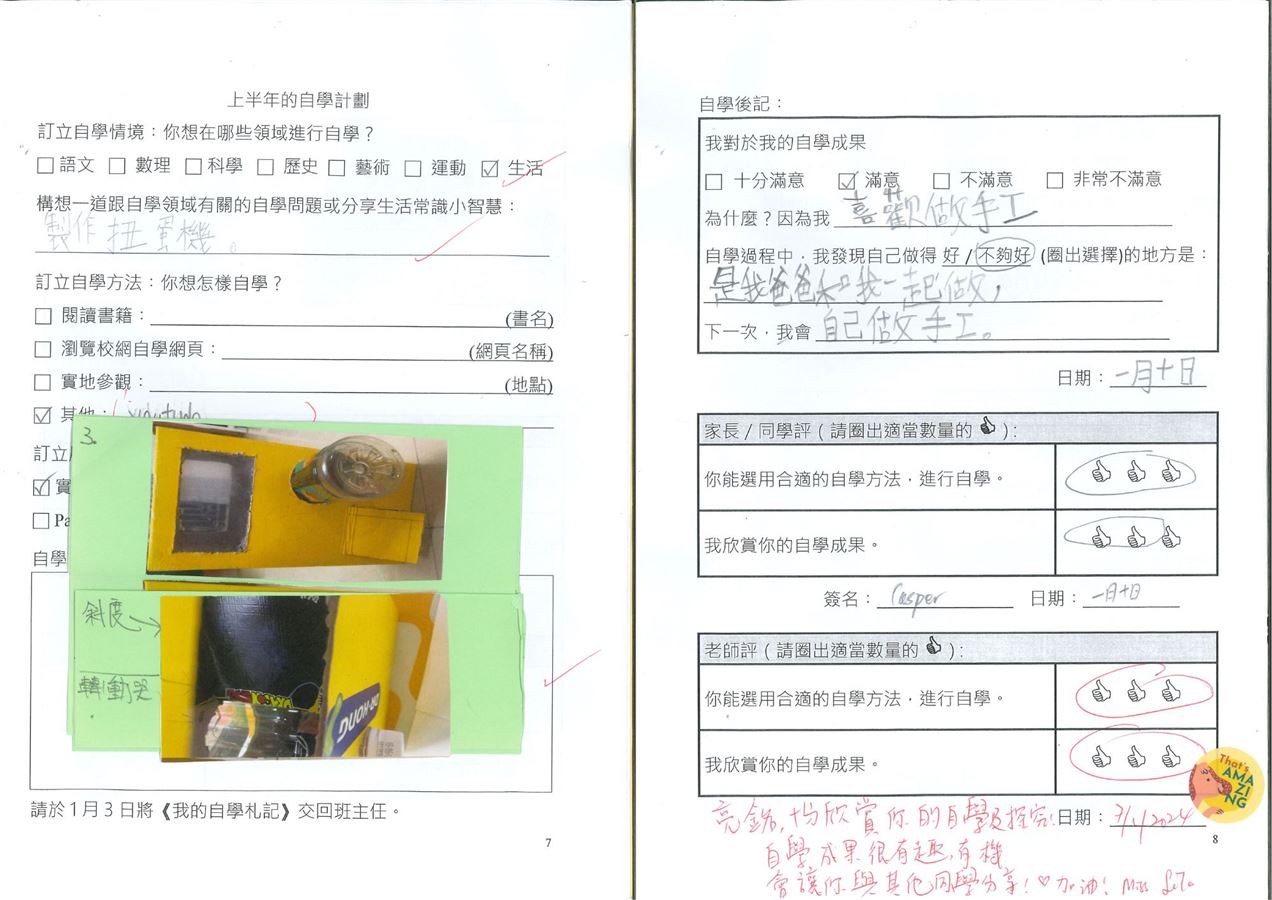 上半年的自學計劃
訂立自學情境：你想在哪些領域進行自學？
☐語文 ☐ 數理 ☐科學 ☐ 歷史 ☐ 藝術 ☐ 運動 ☑ 生活
構想一道跟自學領域有關的自學問題或分享生活常識小智慧：
製作扭蛋機。
訂立自學方法：你想怎樣自學？
☐ 閱讀書籍：(書名)
☐ 瀏覽校網自學網頁：(網頁名稱)
☐ 實地參觀：(地點)
☑ 其他：
3.
訂立
☑ 實
☐ Pa
自學
斜度
轉動
請於1月3日將《我的自學札記》交回班主任。
7
自學後記：
我對於我的自學成果
☐ 十分滿意 ☑ 滿意 ☐ 不滿意 ☐ 非常不滿意
為什麼？因為我 喜歡做手工
自學過程中，我發現自己做得 好 / 不夠好 (圈出選擇)的地方是：
是我爸爸和我一起做，
下一次，我會 自己做手工。
日期：一月十日
家長 / 同學評 ( 請圈出適當數量的 👍 )：
你能選用合適的自學方法，進行自學。 👍 👍 👍
我欣賞你的自學成果。 👍 👍 👍
簽名：Casper 日期：一月十日
老師評 ( 請圈出適當數量的 👍 )：
你能選用合適的自學方法，進行自學。 👍 👍 👍
我欣賞你的自學成果。 👍 👍 👍
That's AMAZING
日期：
亮銘，十分欣賞你的自學及探究！
自學成果很有趣，有機
會讓你與其他同學分享！♡加油！Miss
8